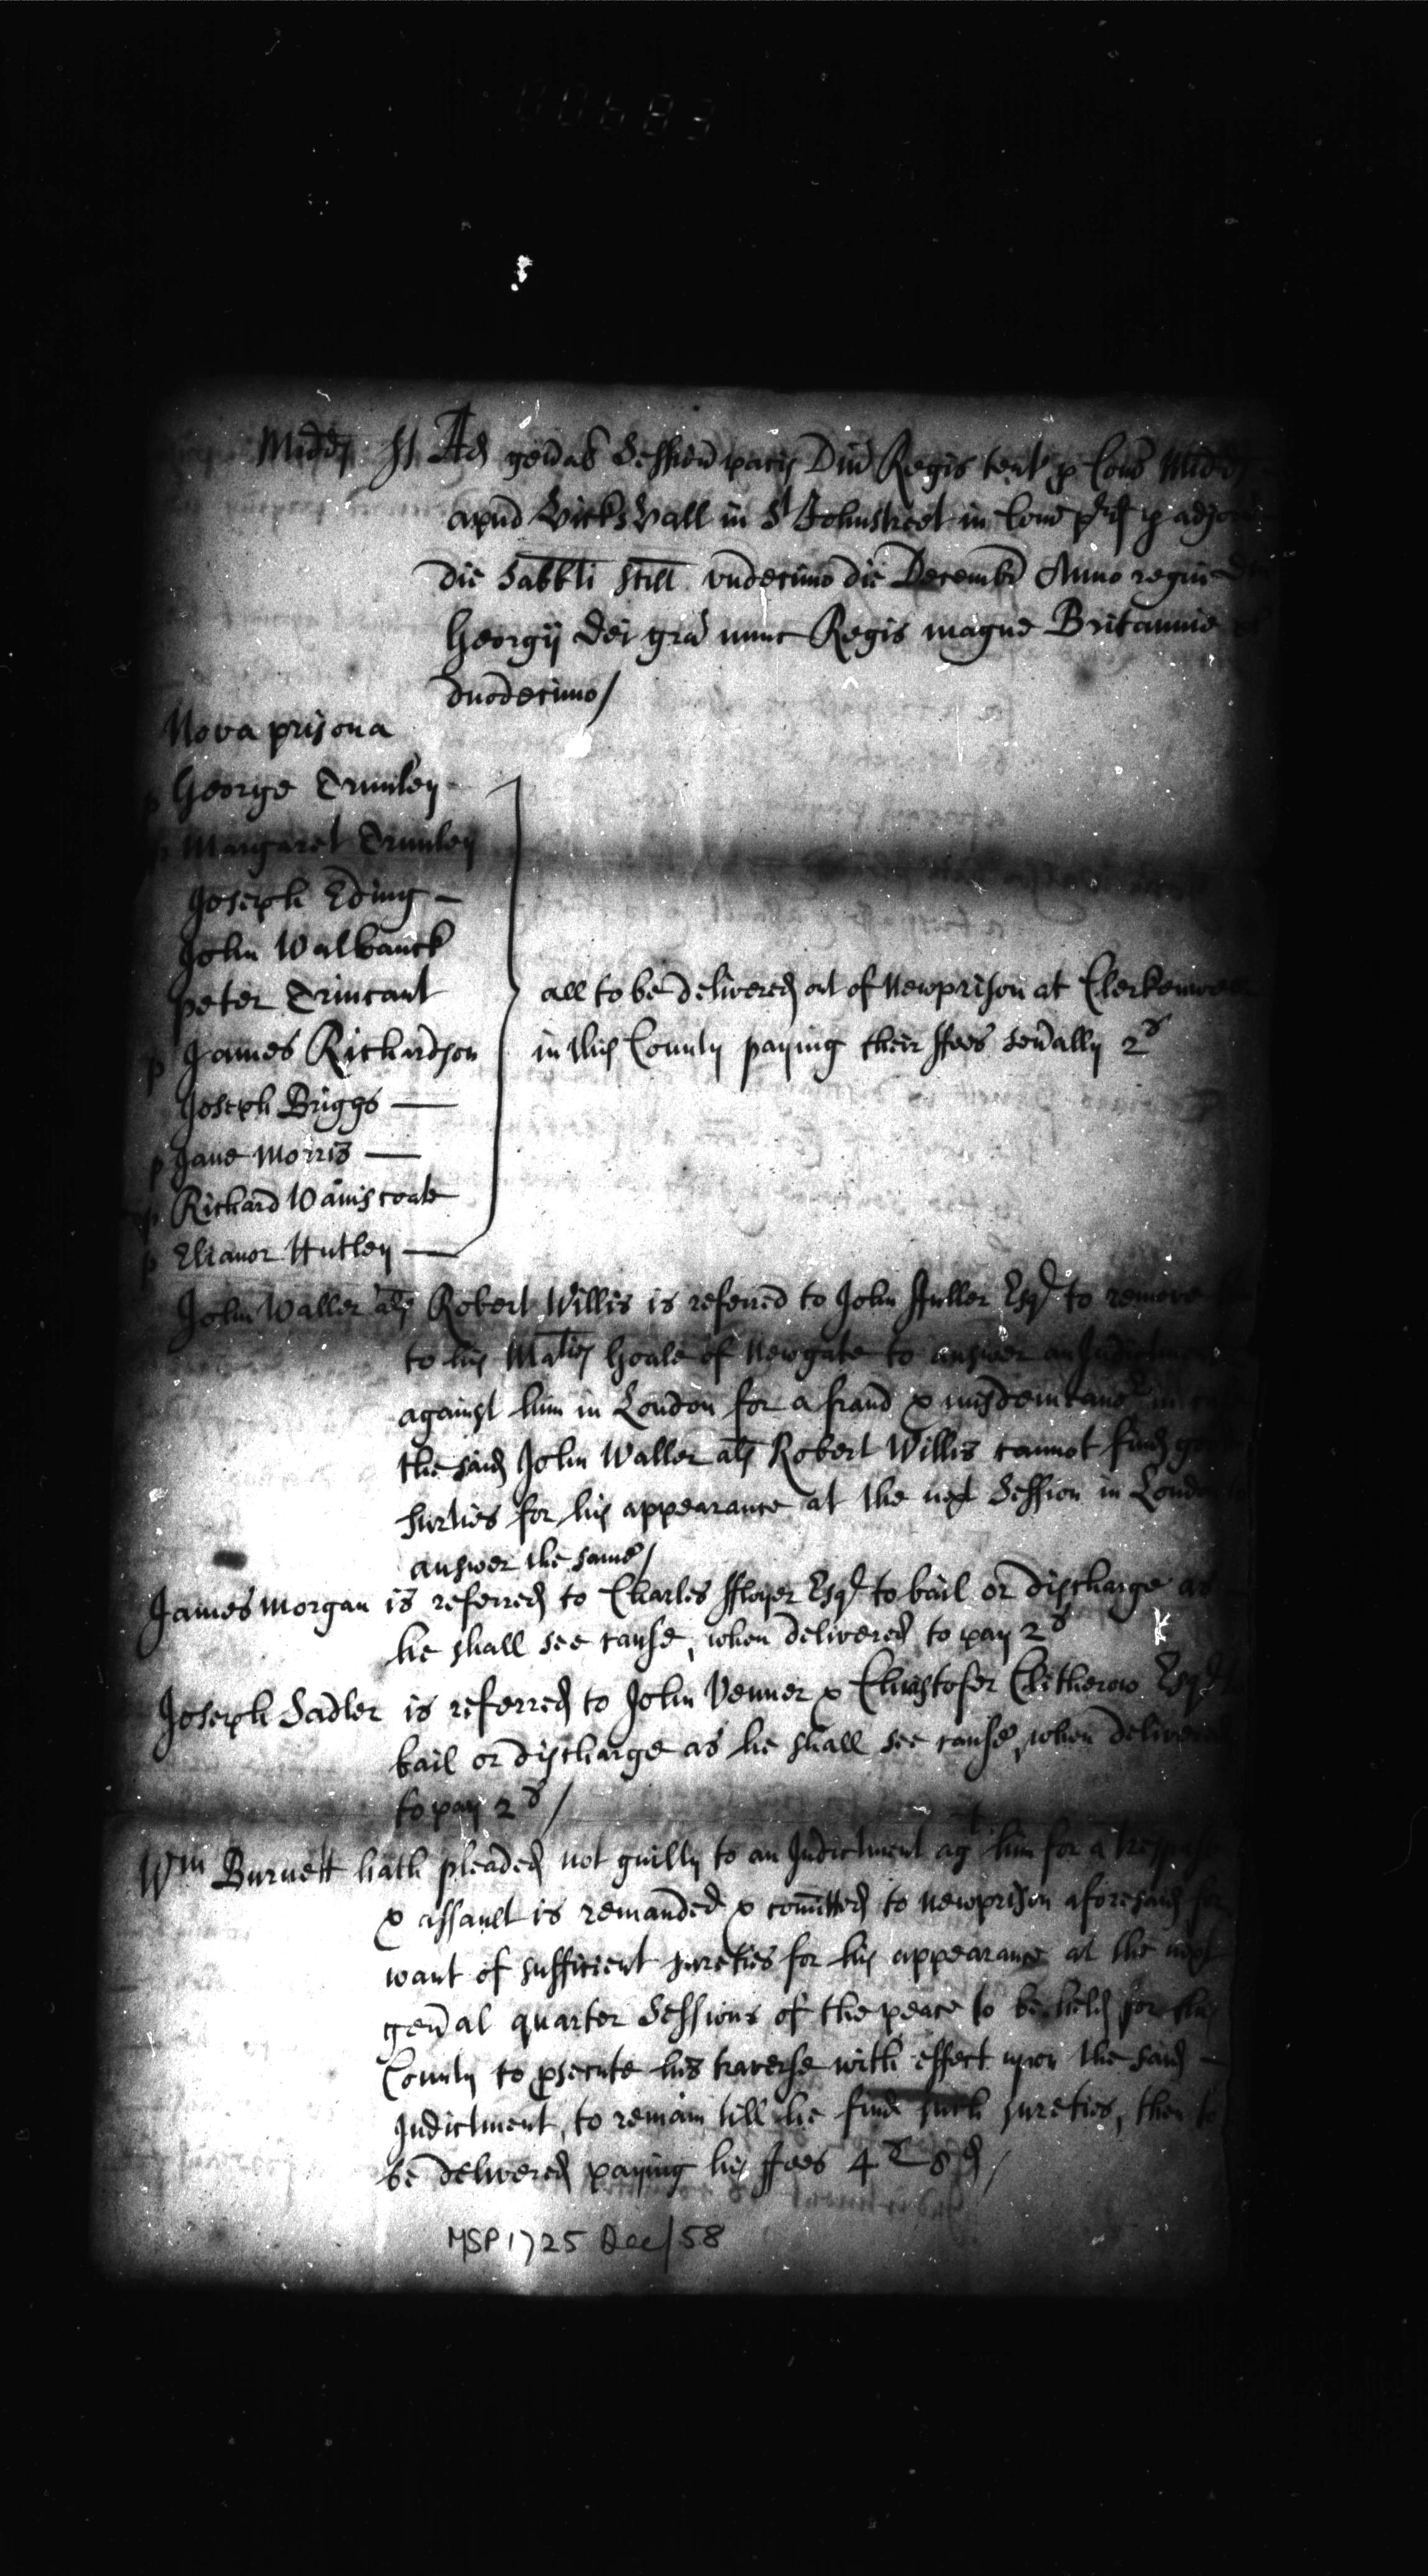 00683
Midd's ss Ad genal Session pacis Dni Regis tent p Com Midd
apud Hicks Hall in St Johnstreet in Com prd p adjorn
die Sabbti scilt undecimo die Decembr Anno regni
Georgij Dei gra nunc Regis magne Britannie
duodecimo/
Nova prisona
p George Trimley
p Margaret Trimley
Joseph Eding —
John Walbanck
Peter Trincant
p James Richardson
Joseph Briggs —
p Jane Morris —
p Richard Wainscoate
p Elianor Hutley —
all to be delivered out of Newprison at Clerkenwell
in this County paying their ffees sevally 2s
John Waller als Robert Willis is referred to John ffuller Esqr to remove
to his Maties Goale of Newgate to answer an Indictment
against him in London for a fraud & misdemeanor in
the said John Waller als Robert Willis cannot find
surties for his appearance at the next Session in London
answer the same/
James Morgan is referred to Charles ffloyer Esqr to bail or discharge as
he shall see cause, when delivered to pay 2s
Joseph Sadler is referred to John Venner & Christofer Clitherow Esqr
bail or discharge as he shall see cause, when delivered
to pay 2s/
Wm Burnett hath pleaded not guilty to an Indictment agt him for a trespass
& assault is remanded & comitted to Newprison aforesaid for
want of sufficient sureties for his appearance at the next
genal quarter Sessions of the peace to be held for this
County to psecute his traverse with effect upon the said —
Indictment, to remain till he find such sureties, then to
be delivered paying his ffees 4s 8d/
MSP 1725 Dec/58